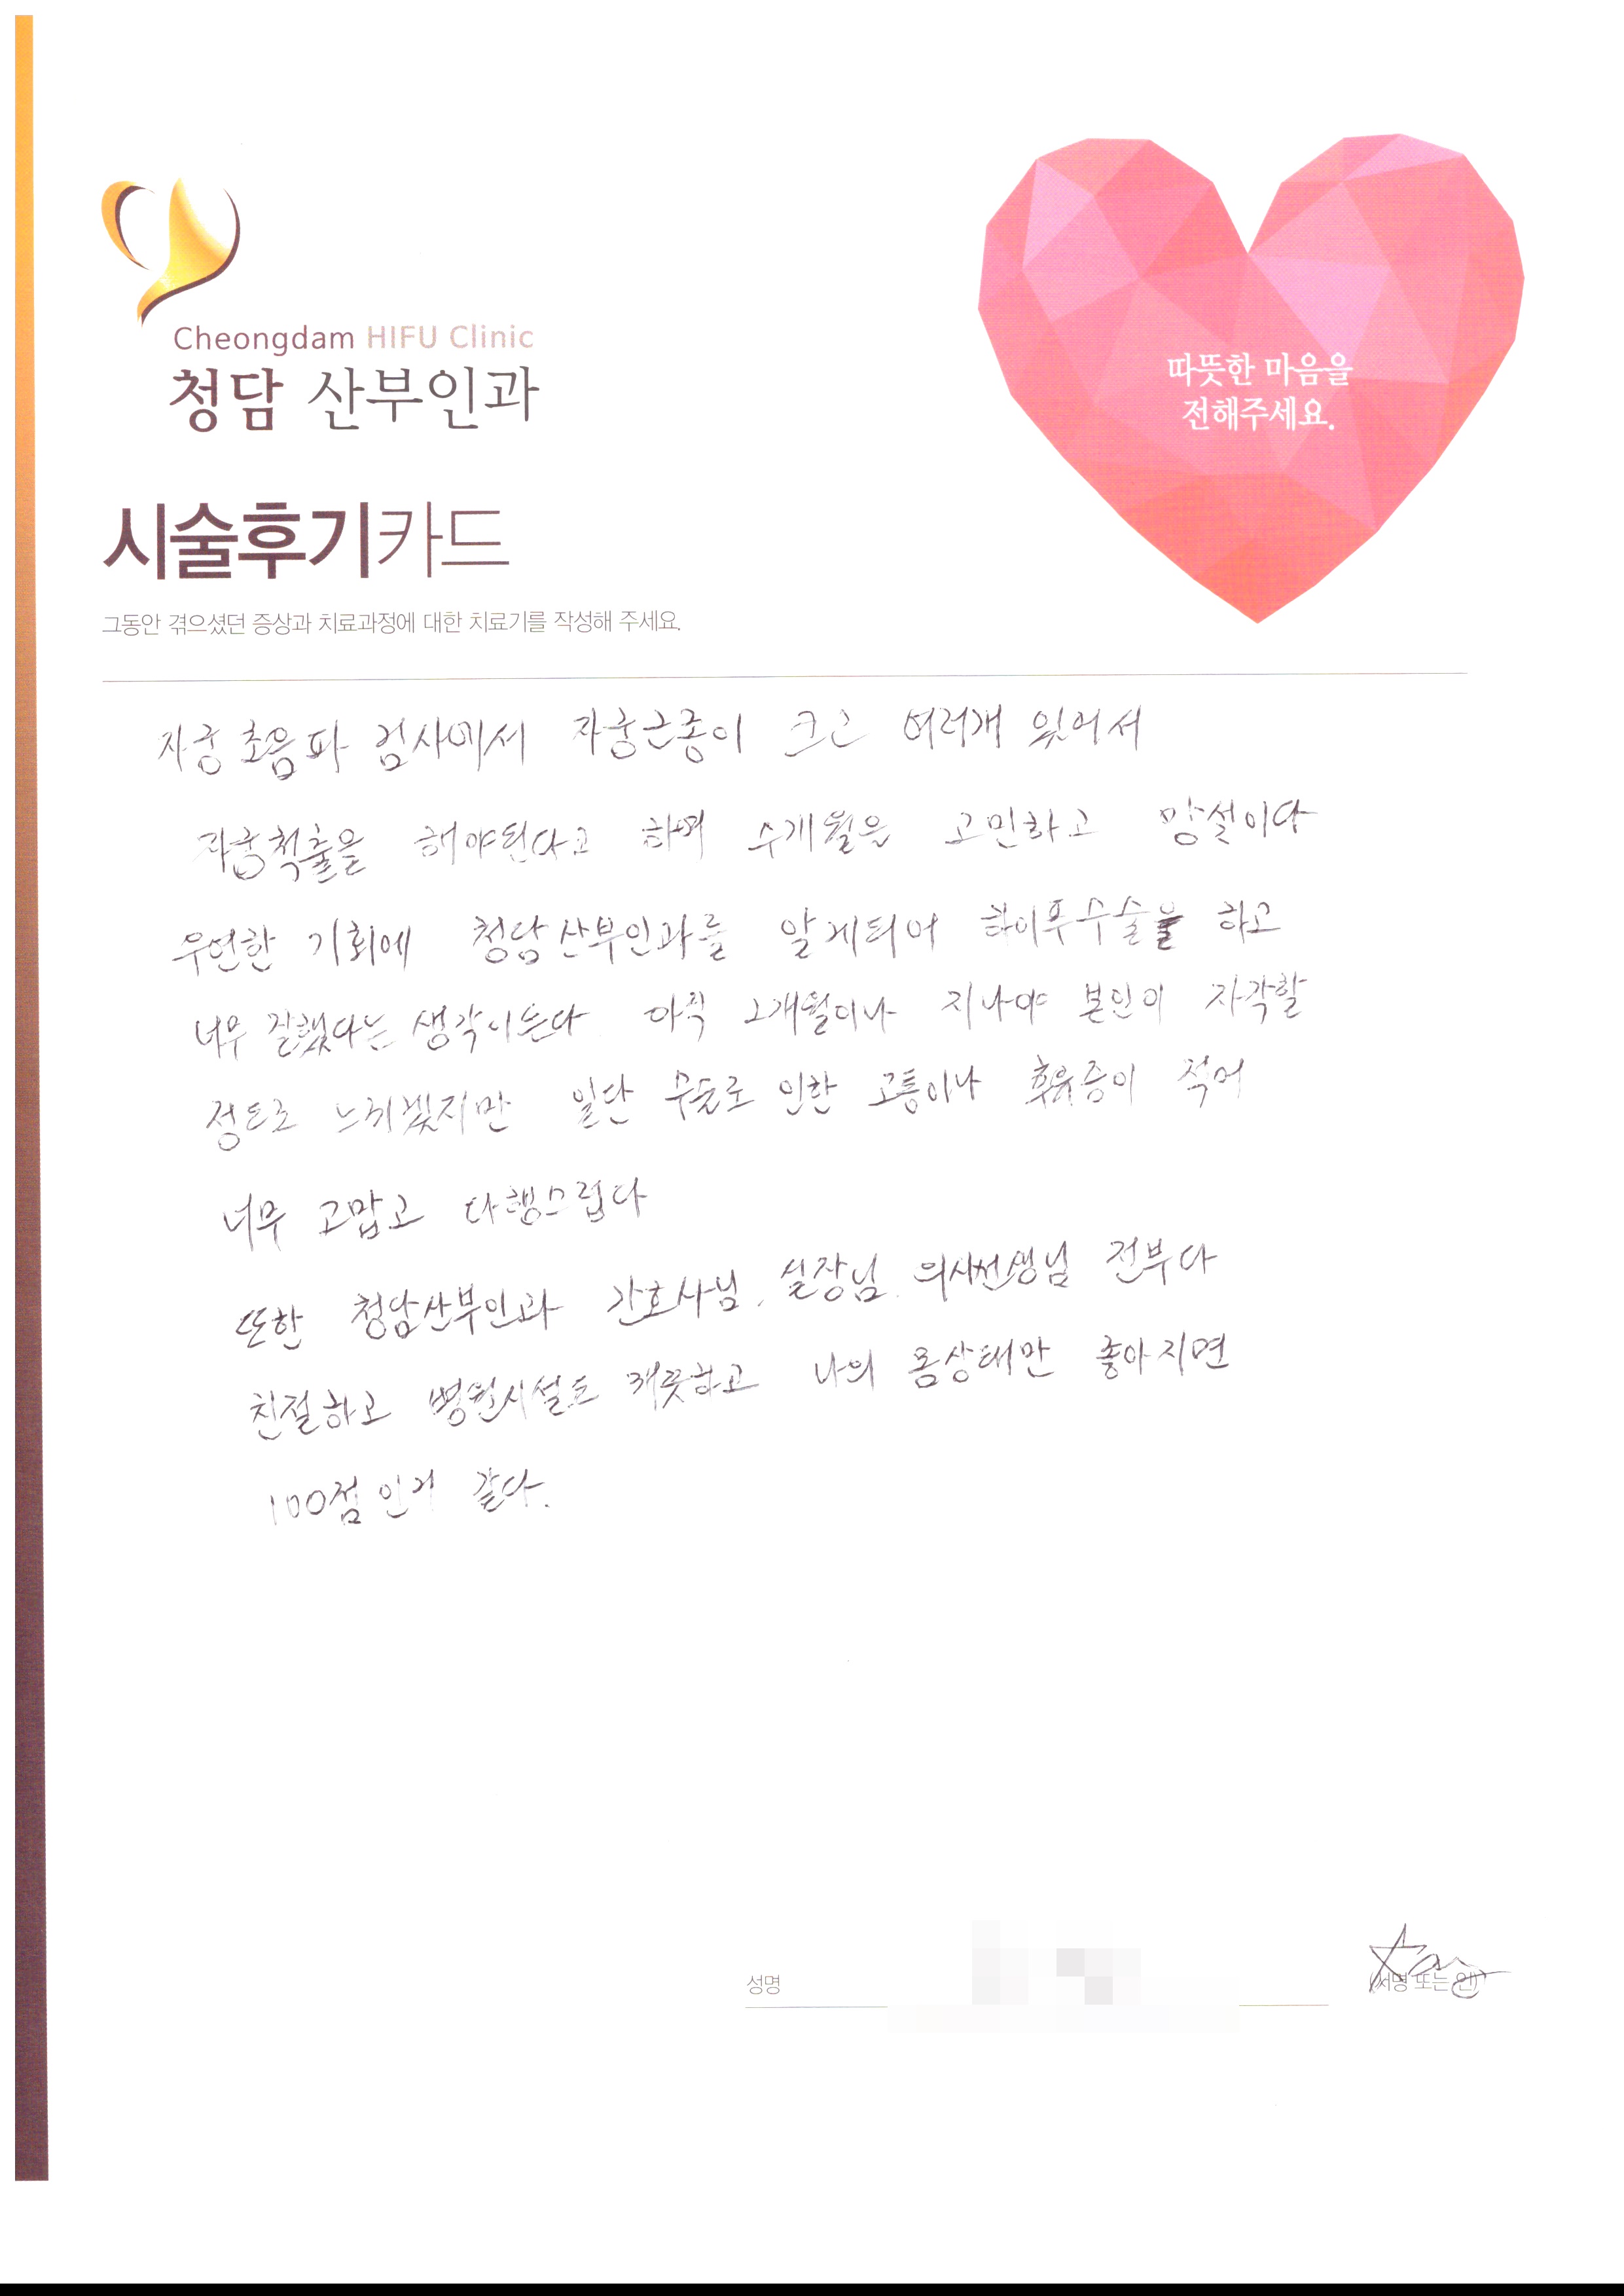 Cheongdam HIFU Clinic
청담 산부인과
따뜻한 마음을
전해주세요.
시술후기카드
그동안 겪으셨던 증상과 치료과정에 대한 치료기를 작성해 주세요.
자궁초음파 검사에서 자궁근종이 크고 여러개 있어서
자궁척출을 해야된다고 하며 수개월을 고민하고 망설이다
우연한 기회에 청담산부인과를 알게되어 하이푸수술을 하고
너무 잘했다는 생각이든다 아직 2개월이나 지나야 본인이 자각할
정도로 느끼겠지만 일단 수술로 인한 고통이나 후유증이 적어
너무 고맙고 다행스럽다
또한 청담산부인과 간호사님, 실장님, 의사선생님 전부다
친절하고 병원시설도 깨끗하고 나의 몸상태만 좋아지면
100점인거 같다.
성명
(서명 또는 인)